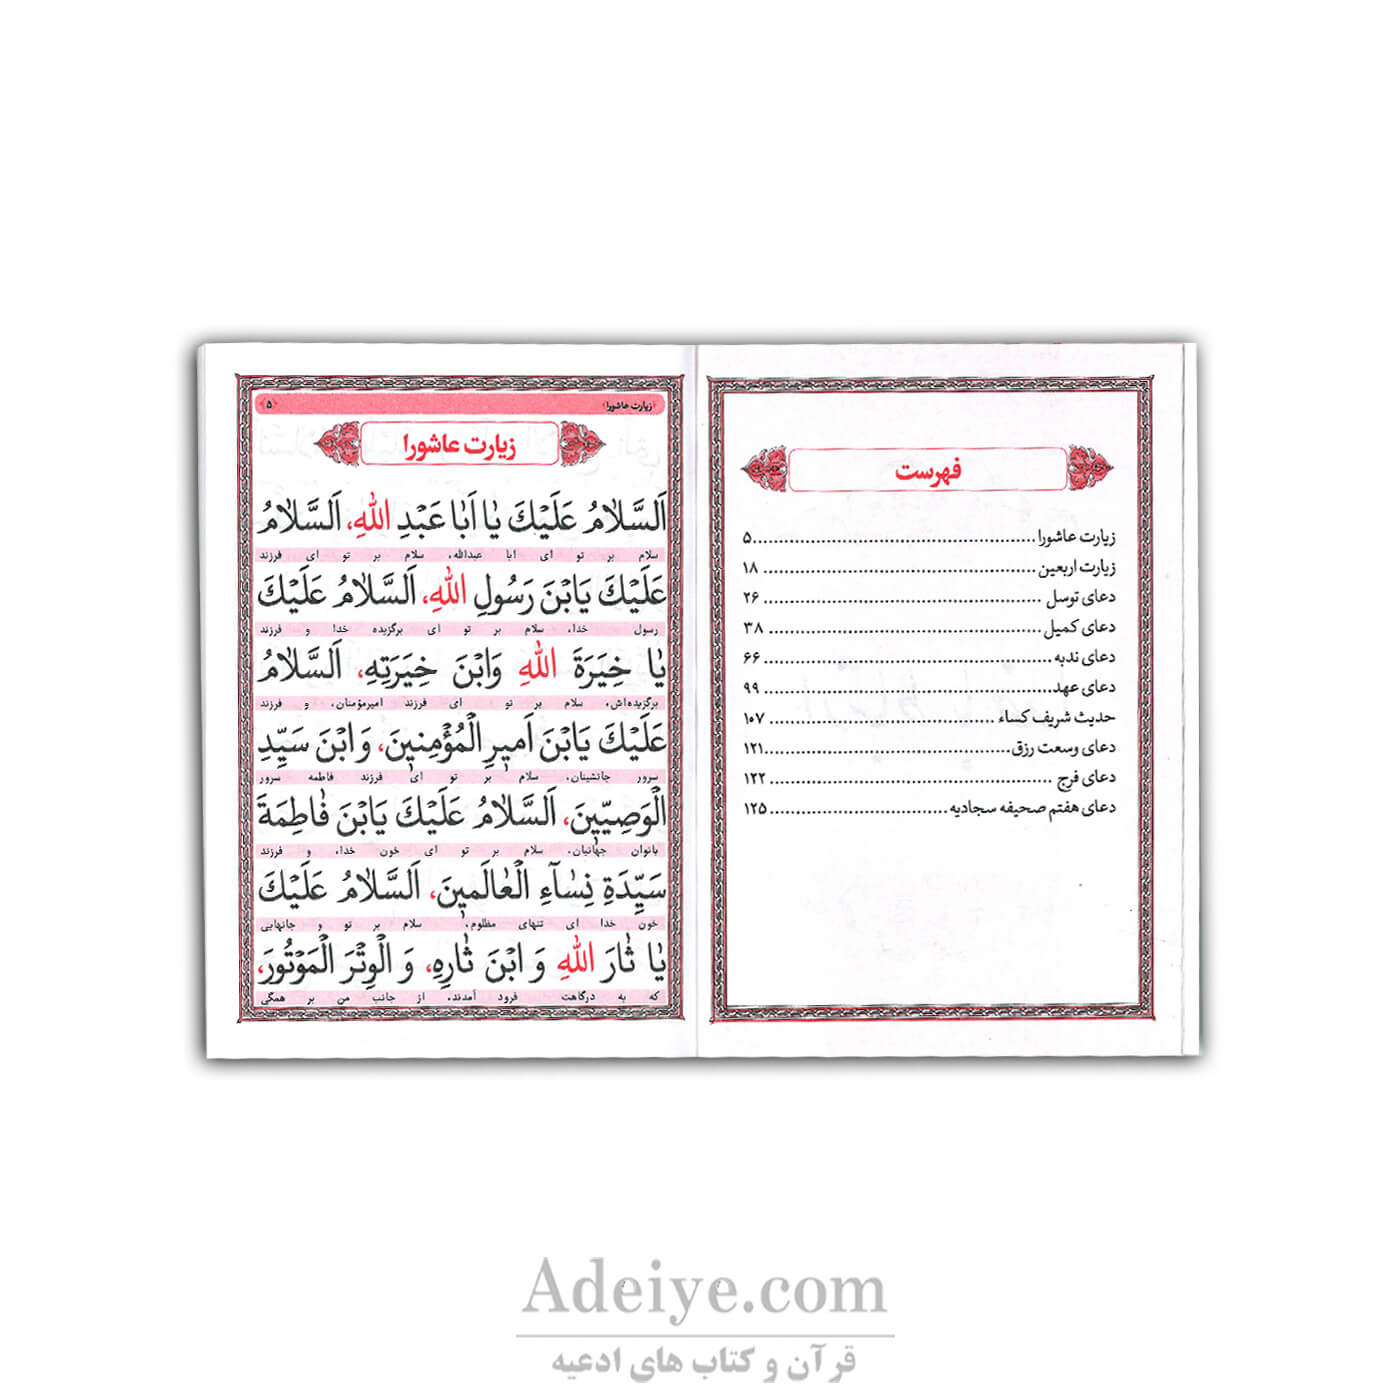 فهرست
زیارت عاشورا ........ ۵
زیارت اربعین ........ ۱۸
دعای توسل ........ ۲۶
دعای کمیل ........ ۳۸
دعای ندبه ........ ۶۶
دعای عهد ........ ۹۹
حدیث شریف کساء ........ ۱۰۷
دعای وسعت رزق ........ ۱۲۱
دعای فرج ........ ۱۲۲
دعای هفتم صحیفه سجادیه ........ ۱۲۵
﴿زیارت عاشورا﴾ ﴿۵﴾
زیارت عاشورا
اَلسَّلٰامُ عَلَیْكَ یٰا اَبٰا عَبْدِ اللّٰهِ، اَلسَّلٰامُ
سلام بر تو ای ابا عبدالله، سلام بر تو ای فرزند
عَلَیْكَ یَابْنَ رَسُولِ اللّٰهِ، اَلسَّلٰامُ عَلَیْكَ
رسول خدا، سلام بر تو ای برگزیده خدا و فرزند
یٰا خِیَرَةَ اللّٰهِ وَابْنَ خِیَرَتِهِ، اَلسَّلٰامُ
برگزیده‌اش، سلام بر تو ای فرزند امیرمؤمنان، و فرزند
عَلَیْكَ یَابْنَ اَمیرِ الْمُؤْمِنینَ، وَ ابْنَ سَیِّدِ
سرور جانشینان، سلام بر تو ای فرزند فاطمه سرور
الْوَصِیّینَ، اَلسَّلٰامُ عَلَیْكَ یَابْنَ فٰاطِمَةَ
بانوان جهانیان، سلام بر تو ای خون خدا، و فرزند
سَیِّدَةِ نِسٰآءِ الْعٰالَمینَ، اَلسَّلٰامُ عَلَیْكَ
خون خدا ای تنهای مظلوم، سلام بر تو و جانهایی
یٰا ثٰارَ اللّٰهِ وَ ابْنَ ثٰارِهِ، وَ الْوِتْرَ الْمَوْتُورَ،
که به درگاهت فرود آمدند، از جانب من بر همگی
Adeiye.com
قرآن و کتاب های ادعیه